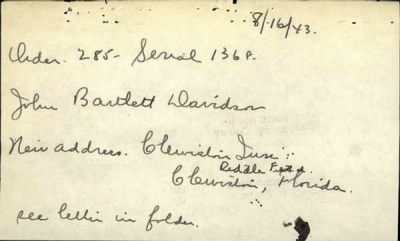 8/16/43.
Order. 285- Serial 1368.
John Bartlett Davidson
New address. Clewiston Inn:
Riddle Field.
Clewiston, Florida.
see letter in folder.